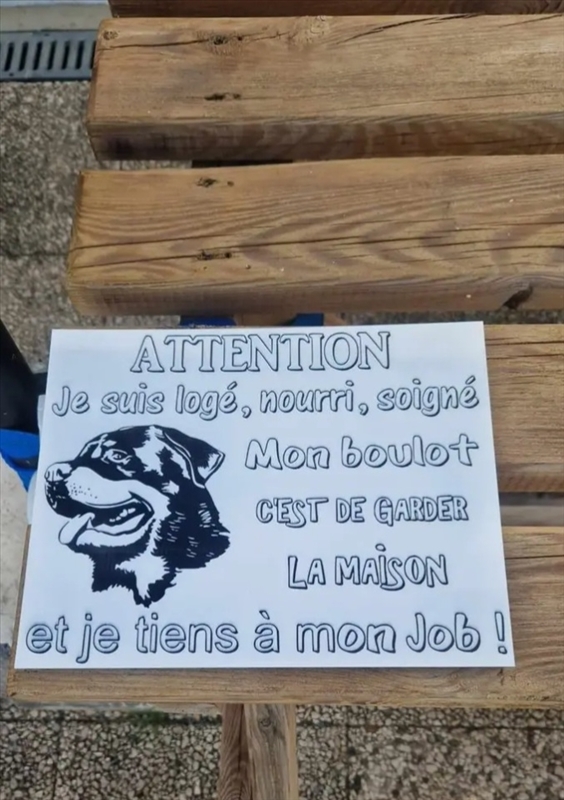 ATTENTION
Je suis logé, nourri, soigné
Mon boulot
C'EST DE GARDER
LA MAISON
et je tiens à mon Job !